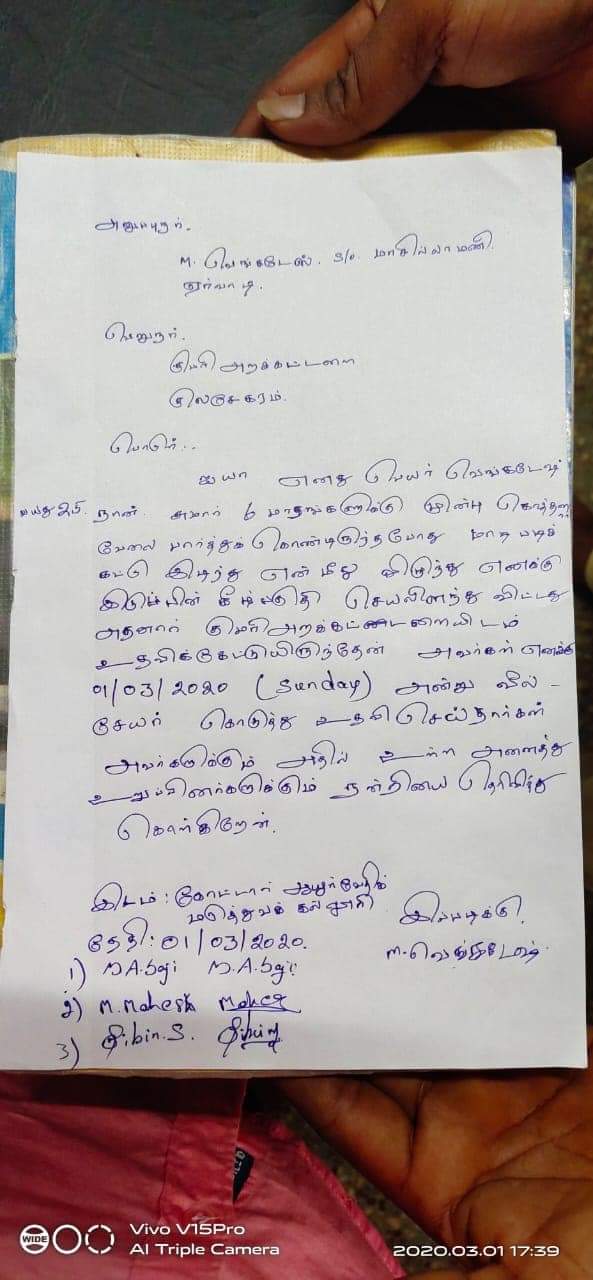 அனுப்புநர்.
M. வெங்கடேஸ். S/o. மாசிலாமணி.
ஏர்வாடி.
பெறுநர்.
குமரி அறக்கட்டளை
குலசேகரம்.
ஐயா எனது பெயர் வெங்கடேஷ்
வயது 25. நான் சுமார் 6 மாதங்களுக்கு முன்பு கொத்தனார்
வேலை பார்த்துக் கொண்டிருந்தபோது மாடி படிக்
கட்டு இடிந்து என் மீது விழுந்து எனக்கு
இடுப்பின் கீழ்பகுதி செயலிழந்து விட்டது
அதனால் குமரி அறக்கட்டளையிடம்
உதவிக்கேட்டுயிருந்தேன் அவர்கள் எனக்கு
01/03/2020 (Sunday) அன்று வீல் -
சேயர் கொடுத்து உதவி செய்தார்கள்
அவர்களுக்கும் அதில் உள்ள அனைத்து
உறுப்பினர்களுக்கும் நன்றியை தெரிவித்து
கொள்கிறேன்.
இடம் : கோட்டார் ஆயுர்வேதிக்
மருத்துவக் கல்லூரி
தேதி : 01/03/2020.
இப்படிக்கு
M. வெங்கடேஷ்.
1) M.A.Saji M.A.Saji
2) M. Mahesh Mahesh
3) bin.S.
WIDE
Vivo V15Pro
AI Triple Camera
2020.03.01 17:39